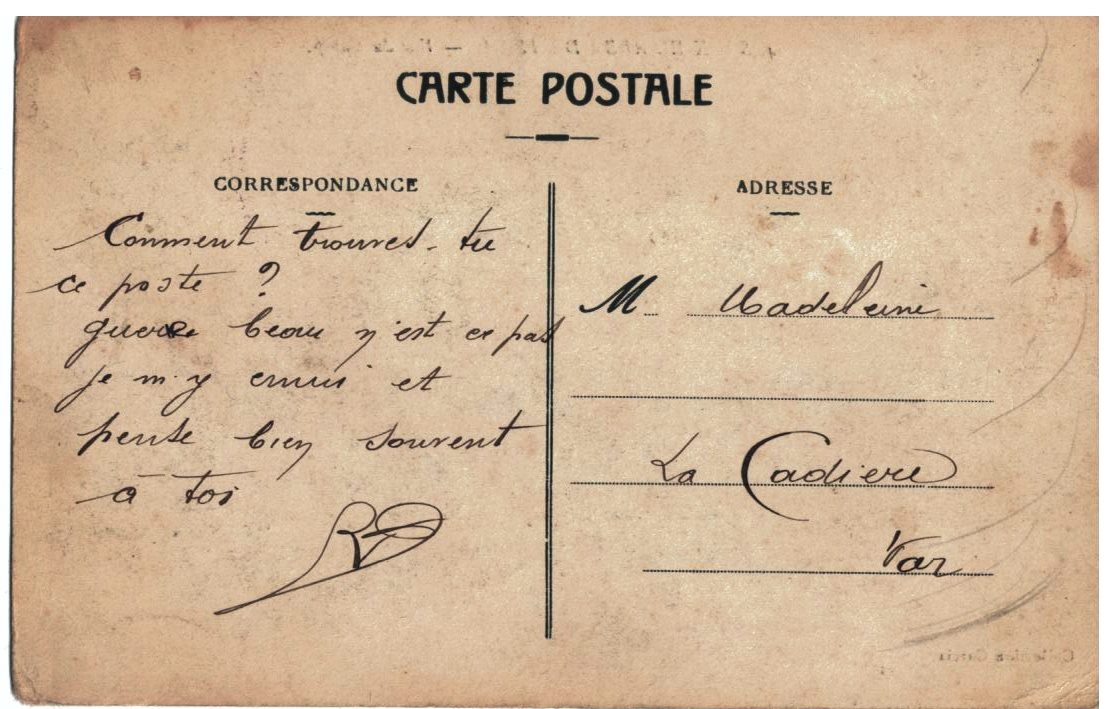 CARTE POSTALE
CORRESPONDANCE
Comment trouves-tu
ce poste ?
guere beau n'est ce pas
je m'y ennui et
pense bien souvent
à toi
ADRESSE
M. Madeleine
La Cadiere
Var